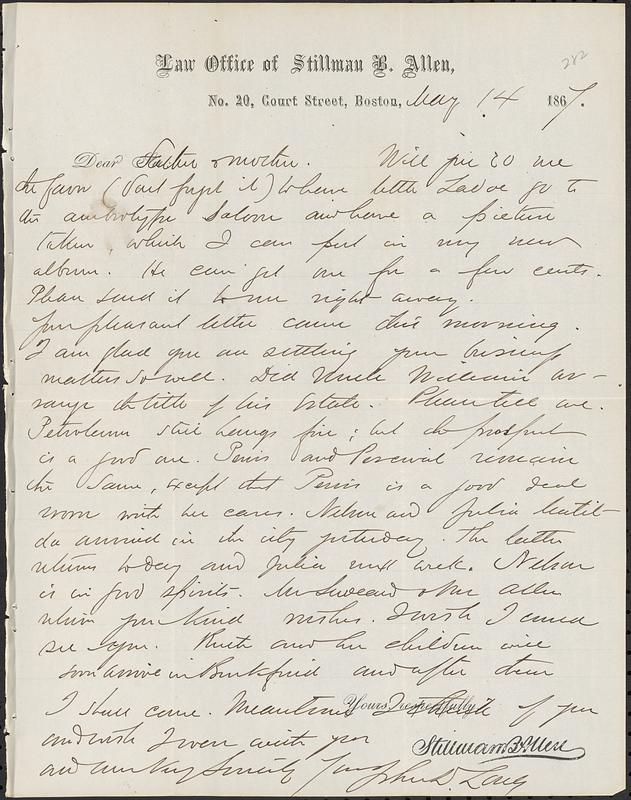 282
Law Office of Stillman B. Allen,
No. 20, Court Street, Boston, May 14 1867.
Dear Father & mother. Will you do me
the favor (don't forget it) to have little Zadoc go to
the ambrotype Saloon and have a picture
taken, which I can put in my new
album. He can get one for a few cents.
Please send it to me right away.
Your pleasant letter came this morning.
I am glad you are settling your business
matters so well. Did Uncle William ar-
range the title of his Estate. Please tell me.
Petroleum still hangs fire; but the prospect
is a good one. and Percival remain
the same, except that is a good deal
worn with her cares. Nelson and Julia
arrived in the city yesterday. The latter
returns today and Julia next week. Nelson
is in good spirits. Mr and Mr Allen
return your kind wishes. I wish I could
see you. Ruth and her children will
soon arrive in Buckfield and after them
I shall come. Meantime I think of you
Yours respectfully
and wish I were with you
Stillman B. Allen
and am Very Sincerely Yours John D. Long